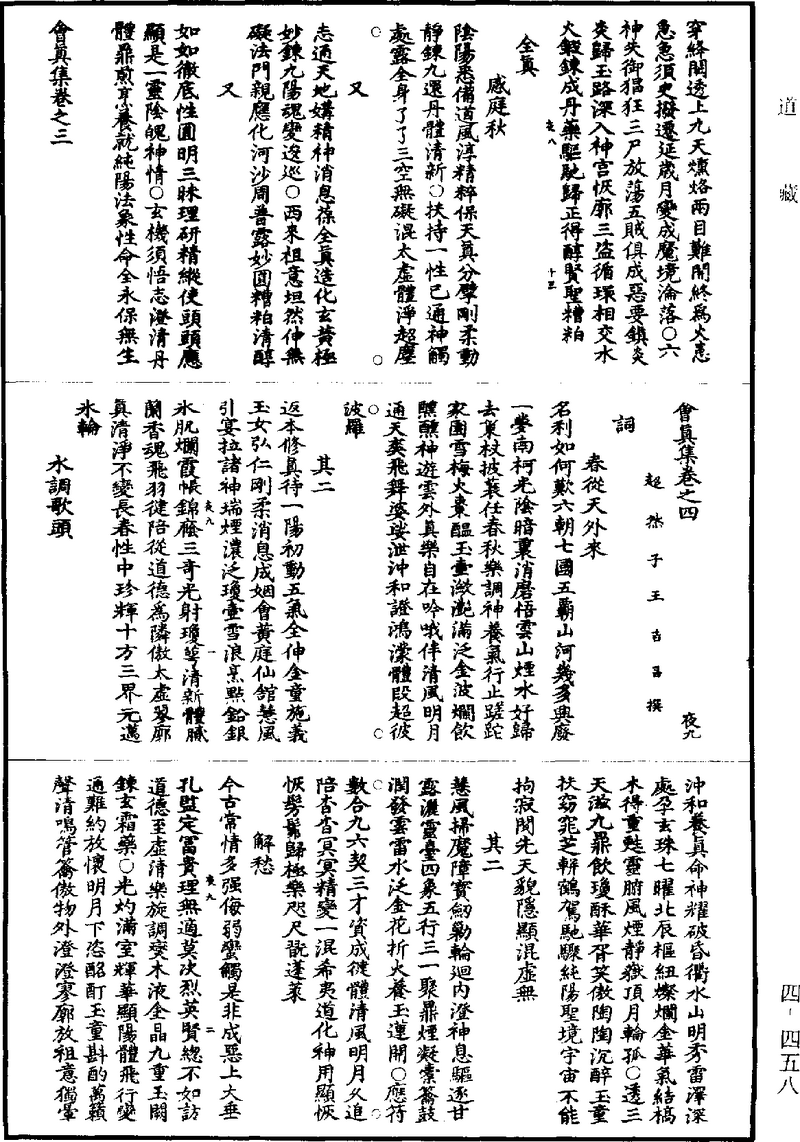 道藏
穿絡關透上九天燻烙兩目難開終為火恚
急急須史撥遷延歲月變成魔境淪落○六
神失御猖狂三尸放蕩五賊俱成惡要鎖炎
炎歸玉路深入神宮恢廓三盜循環相交水
火鍛鍊成丹藥驅馳歸正得醇賢聖糟粕
夜八
十三
全真
感庭秋
陰陽悉備道風淳精粹保天真分擘剛柔動
靜鍊九還丹體清新○扶持一性已通神觸
處露全身了了三空無礙混太虛體淨超塵
又
志通天地媾精神消息葆全真造化玄黃極
妙鍊九陽魂變逡巡○西來祖意坦然伸無
礙法門親應化河沙周普露妙圓糟粕清醇
又
如如徹底性圓明三昧理研精縱使頭頭應
顯是一靈陰魄神情○玄機須悟志澄清丹
體鼎煎烹養就純陽法象性命全永保無生
會真集卷之三
會真集卷之四
夜九
超然子王吉昌撰
詞
春從天外來
名利如何歎六朝七國五霸山河幾多興廢
一夢南柯光陰暗裏消磨悟雲山煙水好歸
去策杖披蓑任春秋樂調神養氣行止蹉跎
家園雪梅火棗醞玉壺瀲灩滿泛金波爛飲
醺醺神遊雲外真樂自在吟哦伴清風明月
通天奕飛舞婆娑泄沖和證鴻濛體段超彼
波羅
其二
返本修真待一陽初動五氣全伸金童施義
玉女弘仁剛柔消息成姻會黃庭仙舘慧風
引宴拉諸神瑞煙濃泛瓊壺雪浪烹點鉛銀
夜九
一
氷肌爛霞帳錦廕三奇光射瓊萼清新體膩
蘭香魂飛羽徤陪從道德為隣傲太虛翠廓
真清淨不變長春性中珍輝十方三界元邁
氷輪
水調歌頭
沖和養真命神耀破昏衢水山明秀雷澤深
處孕玄珠七曜北辰樞紐燦爛金華氣結槁
木得重甦靈腑風煙靜嶽頂月輪孤○透三
天漩九鼎飲瓊酥華胥笑傲陶陶沉醉玉童
扶窈窕芝軿鶴駕馳驟純陽聖境宇宙不能
拘寂閴先天貌隱顯混虛無
其二
慧風掃魔障寶劒勦輪迴內澄神息驅逐甘
露灑靈臺四象五行三一聚鼎煙凝橐籥鼓
潤發雲雷水泛金花折火養玉蓮開○應符
數合九六契三才資成徤體清風明月久追
陪杳杳冥冥精變一混希夷道化神用顯恢
恢髣髴歸極樂咫尺翫蓬萊
解愁
今古常情多强侮弱蠻觸是非成惡上大垂
孔監定冨貴理無適莫次烈英賢緫不如訪
夜九
二
道德至虛清樂旋調燮木液金晶九重玉關
鍊玄霜藥○光灼滿室輝華顯陽體飛行變
通難約放懷明月下恣酩酊玉童斟酌萬籟
聲清鳴管籥傲物外澄澄寥廓放祖意獨暈
四-四五八